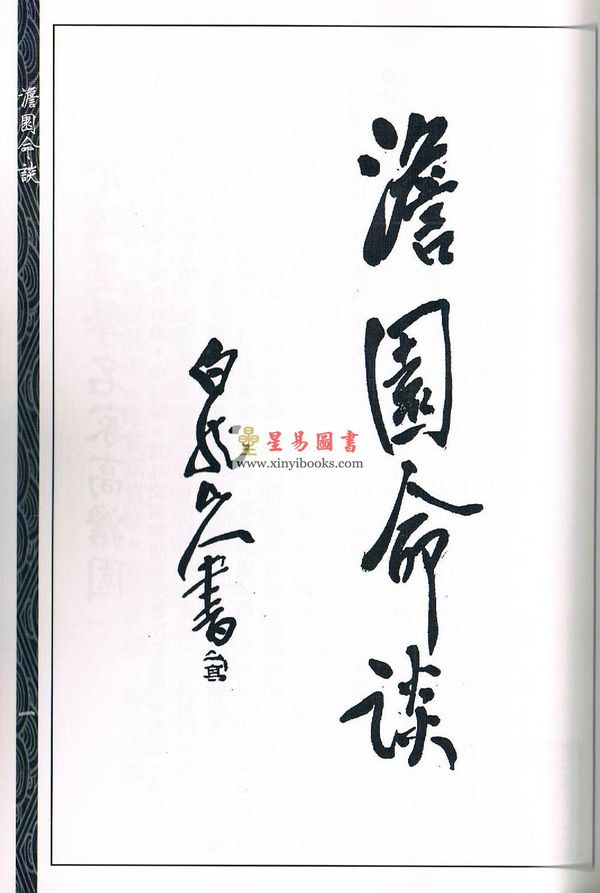 澹園命談
白龍山人書
星易圖書
www.xinyibooks.com
澹園命談
一